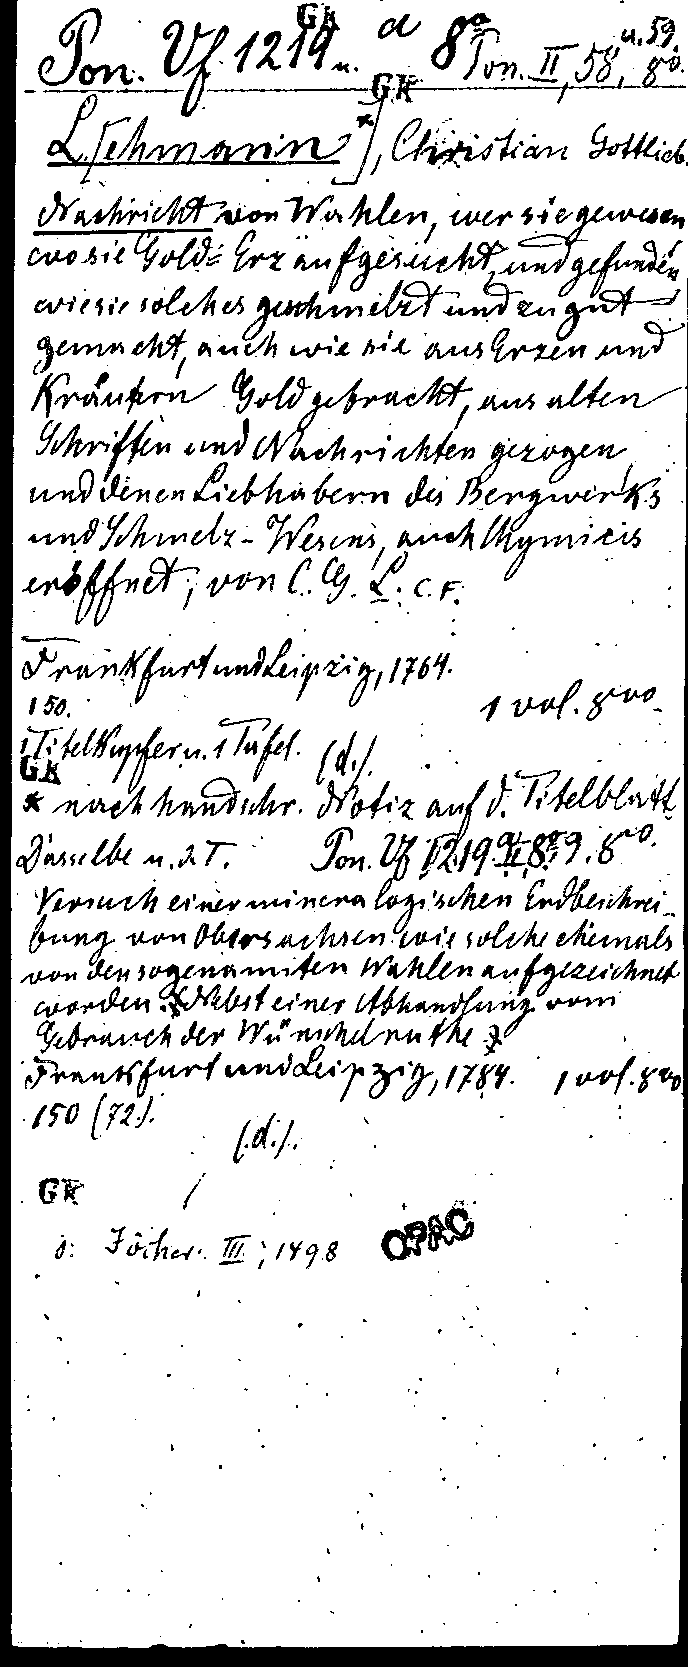 GK
Pon. Vf. 1219 u. a 8º Pon. II, 58, u. 59. 8º.
GK
L[ehmann*], Christian Gottlieb.
Nachricht von Wahlen, wer sie gewesen
wo sie Gold=Erz aufgesucht, und gefunden,
wie sie solches geschmelzt und zu gut
gemacht, auch wie sie aus Erzen und
Kräutern Gold gebracht, aus alten
Schriften und Nachrichten gezogen
und denen Liebhabern des Bergwerks
und Schmelz-Wesens, auch Chymicis
eröffnet, von C. G. L. C. F.
Frankfurt und Leipzig, 1764.
150. 1 vol. 8vo.
1 Titelkupfer u. 1 Tafel. (d.).
GK
* nach handschr. Notiz auf d. Titelblatt
Dasselbe u. d. T. Pon. Vf 1219 8vo.
Versuch einer mineralogischen Erdbeschrei-
bung von Obersachsen wie solche ehemals
von den sogenannten Wahlen aufgezeichnet
worden. Nebst einer Abhandlung vom
Gebrauch der Wünschelruthe
Frankfurt und Leipzig, 1784. 1 vol. 8vo
150 (72).
(.d.).
GK
s: Jöcher. III, 1498 OPAC